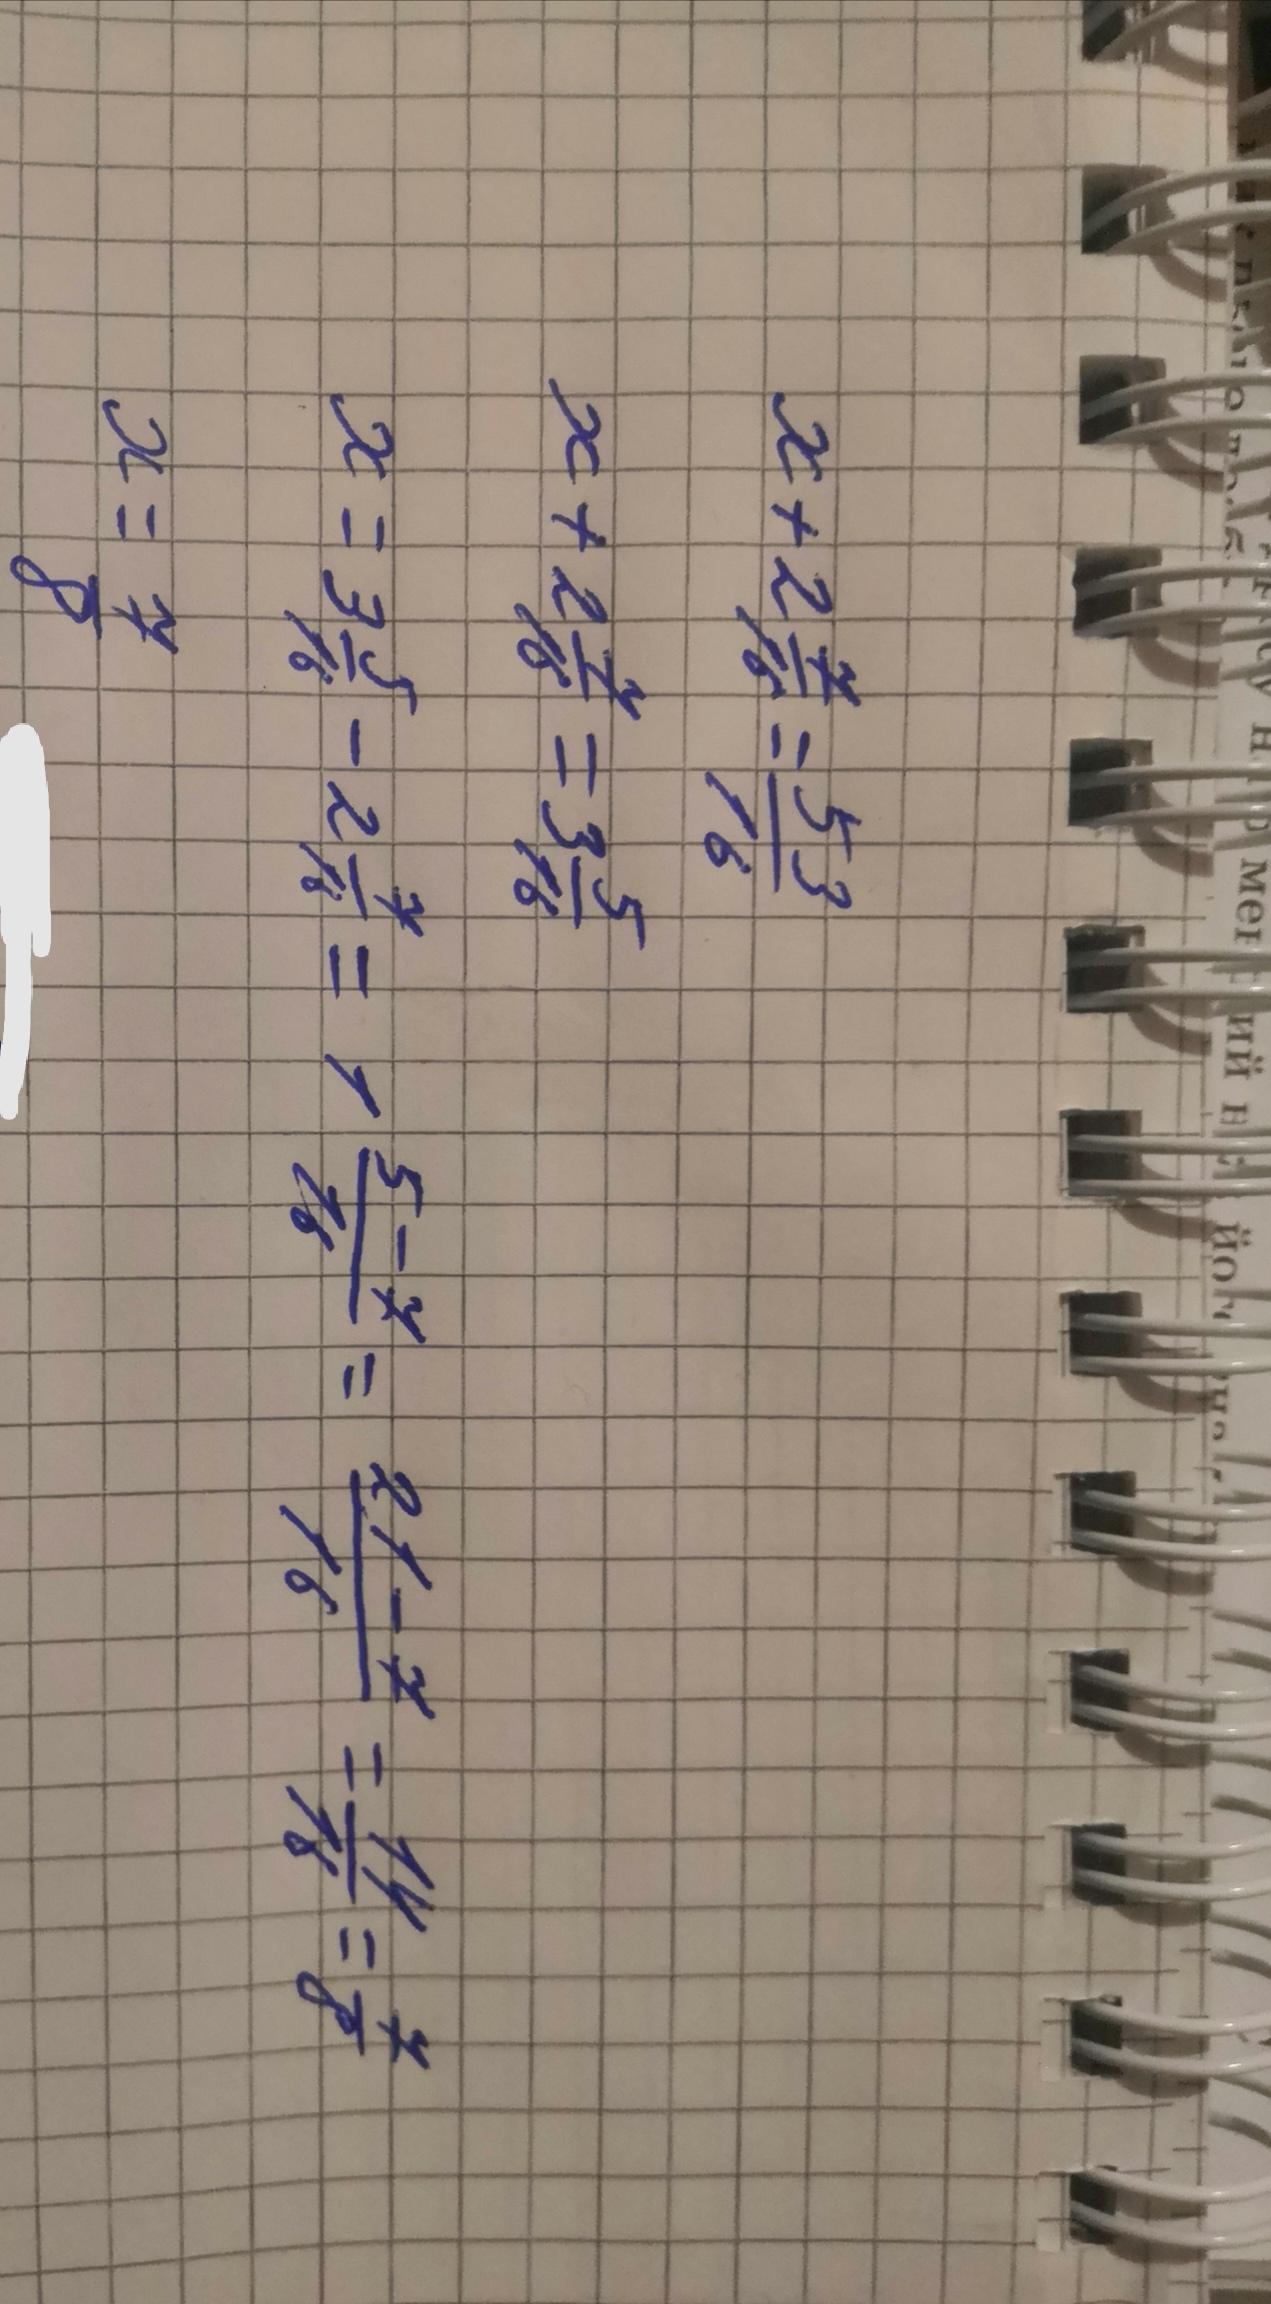 x + 2 7/16 = 53/16
x + 2 7/16 = 3 5/16
x = 3 5/16 - 2 7/16 = 1 (5-7)/16 = (21-7)/16 = 14/16 = 7/8
x = 7/8